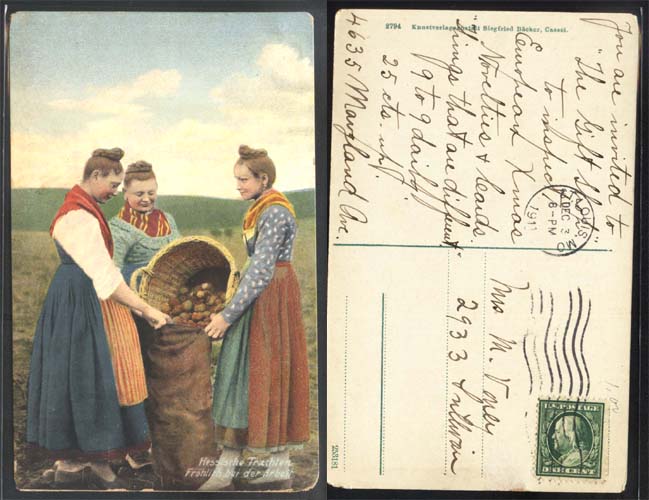 Hessische Trachten
Fröhlich bei der Arbeit
2794 Kunstverlagsanstalt Siegfried Bäcker, Cassel.
You are invited to
"The Gift Shop"
to inspect
European Xmas
Novelties & leads
"things that are different"
9 to 9 daily
25 cts. up
4635 Maryland Ave.
LOUIS
DEC 3
6-PM
1911
Mrs M.
2933 Sullivan
253181
U.S. POSTAGE
ONE CENT
1.00